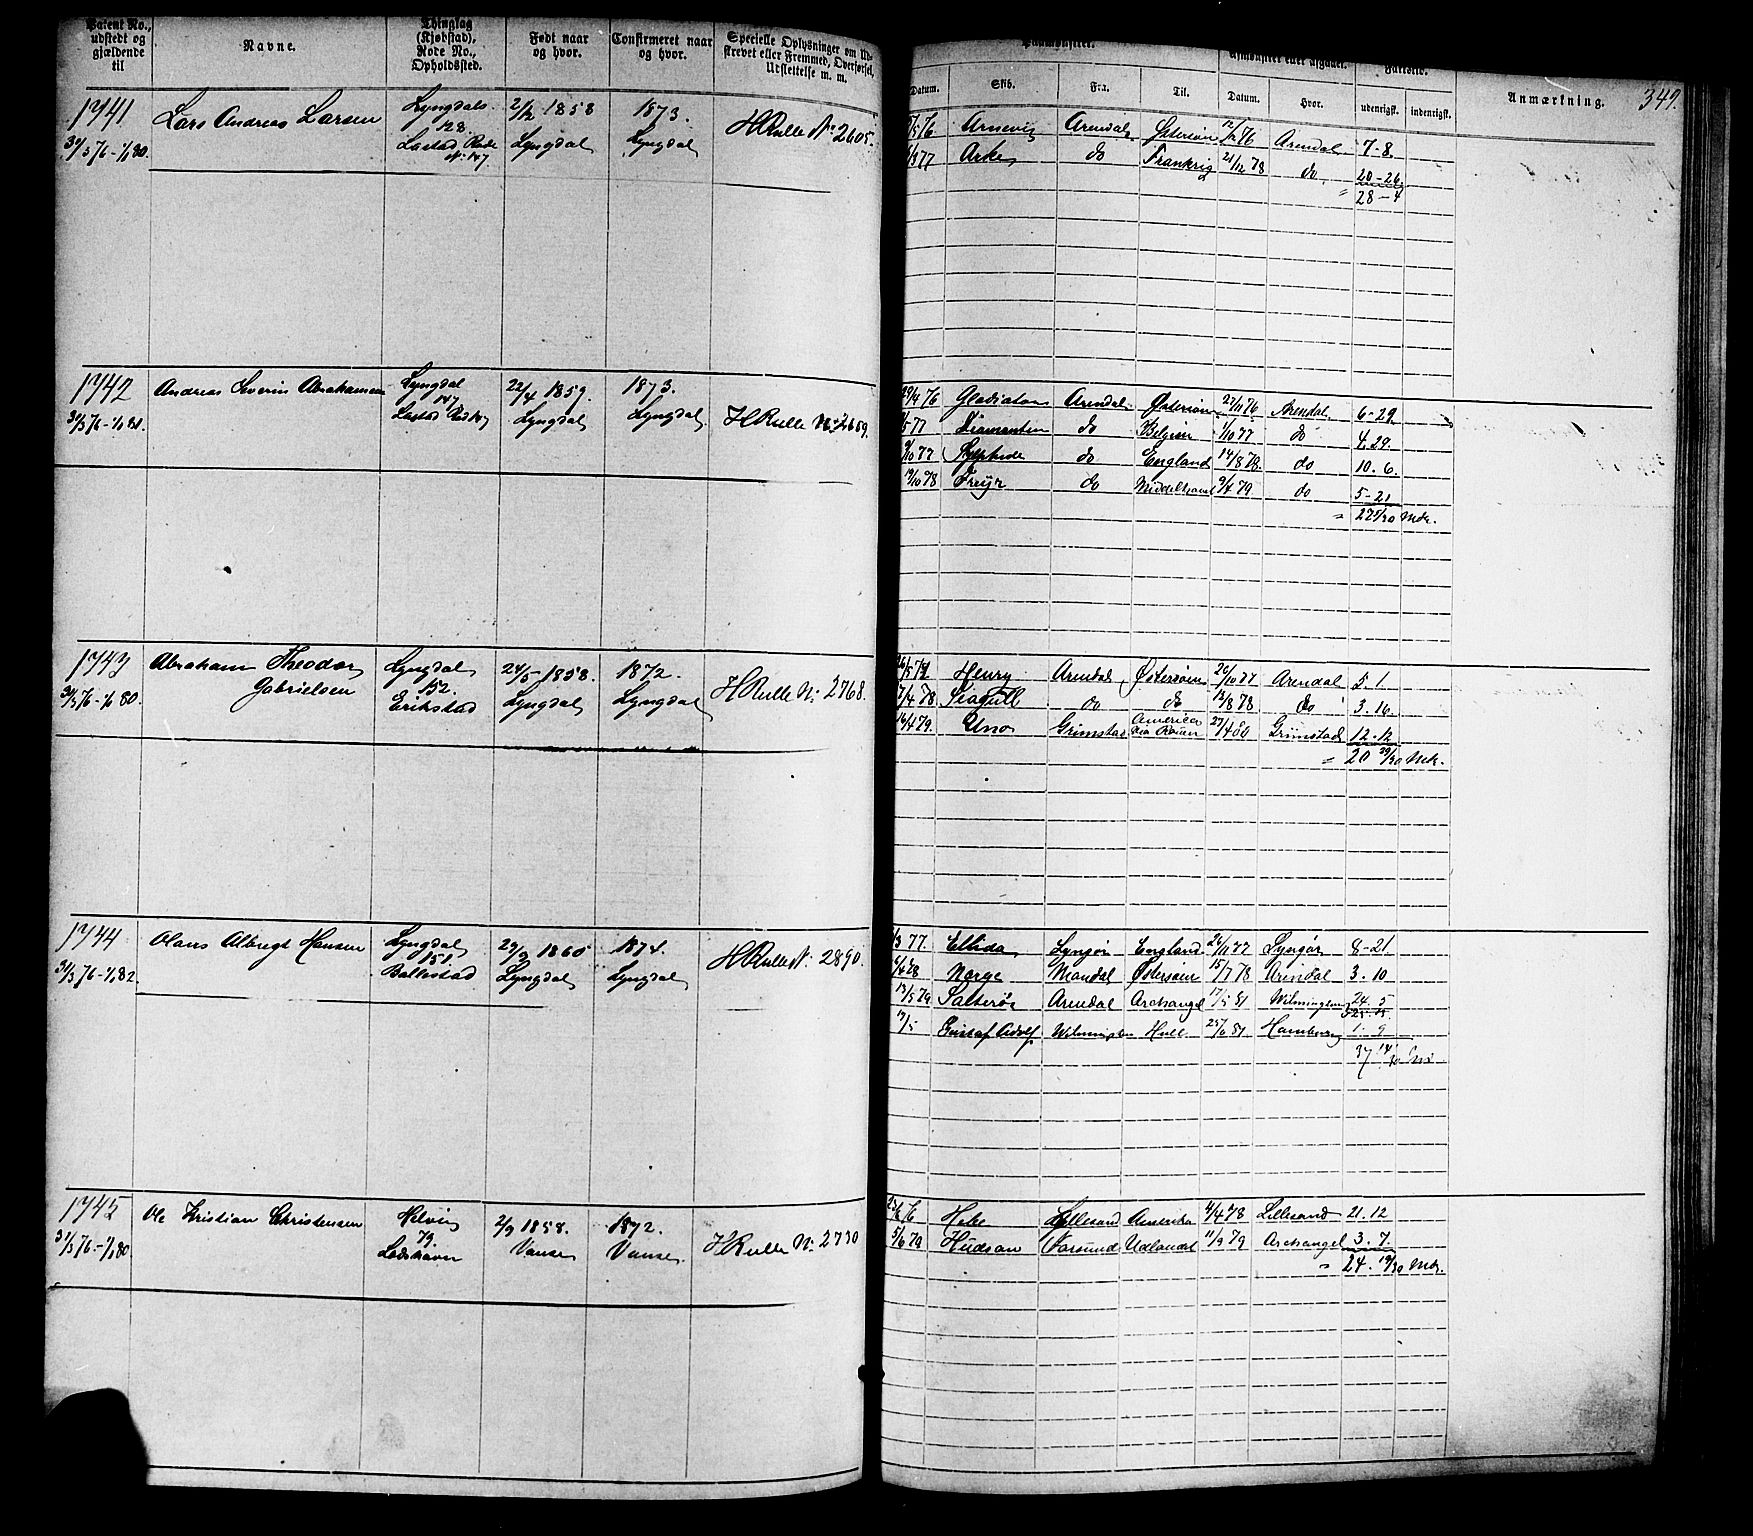 Patent No., udstedt og gjældende til
Navne.
Thinglag (Kjøbstad), Rode No., Opholdssted.
Født naar og hvor.
Confirmeret naar og hvor.
Specielle Oplysninger om Udskrevet eller Fremmed, Overførsel, Udslettelse m. m.
Datum.
Skib.
Fra.
Til.
Datum.
Hvor.
udenrigsk.
indenrigsk.
Anmærkning.
349.
1741
31/3 76 - 1/1 80.
Lars Andreas Larsen
Lyngdals
128
Lastad Rode
No 147
2/12 1858
Lyngdal
1873.
Lyngdal
HRulle No 2605.
Arnevig Arendal Østersøen 12/12 76 Arendal 7-8.
77 Arke do Frankrig 21/12 78 do 20-26
" 28-4
1742
31/3 76 - 1/1 81.
Andreas Severin Abrahamsen
Lyngdal
147
Lastad
22/4 1859.
Lyngdal
1873.
Lyngdal
HRulle No 2659.
29/4 76 Gladiator Arendal Østersøen 27/11 76 Arendal 6-29.
77 Diamanten do Belgien 1/10 77 do 4.29.
10 77 Sylphide do England 14/8 78. do 10.6.
19/10 78 Freyr do Middelhavet 9/4 79 do 5-21
" 27 25/30 Mdr.
1743
31/3 76 - 1/1 80.
Abraham Theodor
Gabrielsen
Lyngdal
152.
Erikstad
24/5 1858.
Lyngdal
1872.
Lyngdal
HRulle No 2768.
Henry Arendal Østersøen 26/10 77 Arendal 5.1.
7/4 78 Seagull do do 12/8 78 do 3.16.
16/4 79. Uno Grimstad America via Rouen 27/4 80 Grimstad 12-12
" 20 29/30 Mdr.
1744
31/3 76 - 1/1 82.
Olaus Albregt Hansen
Lyngdal
151.
Ballestad
29/2 1860
Lyngdal
1874.
Lyngdal
HRulle No 2890.
3 77. Ellida Lyngør England 26/11 77 Lyngør 8-21.
Norge Mandal Østersøen 15/7 78 Arendal 3.10
13/5 79 Salterø Arendal Archangel 17/5 81 Wilmington 24.5
19/5 Gustaf Adolf Wilmington Hull 25/6 81 Hamborg 1.9
37 14/30 Md
1745
31/3 76 - 1/1 80
Ole Kristian Christensen
Helvig
79.
Lodshavn
2/9 1858.
Vanse
1872.
Vanse
HRulle No 2730
23/6 76 Hebe Lillesand Amerika 4/4 78 Lillesand 21.12
5/6 79 Hudson Farsund Udlandet 11/9 79 Archangel 3.7.
" 24. 19/30 Mdr.